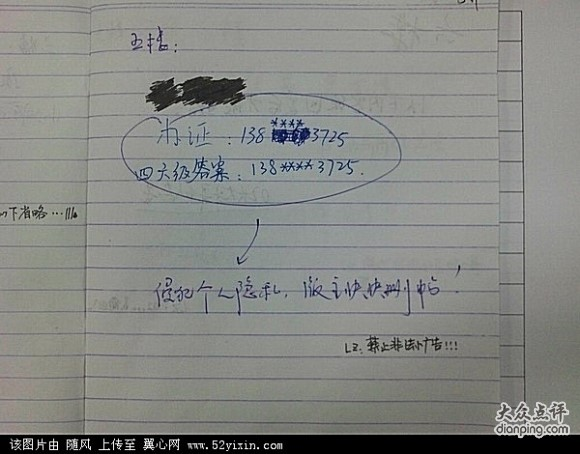 五楼:
办证:138****3725
四六级答案:138****3725.
侵犯个人隐私,版主快快删帖!
以下省略…
LZ:禁止非法广告!!!
大众点评
dianping.com
该图片由 随风 上传至 翼心网 www.52yixin.com